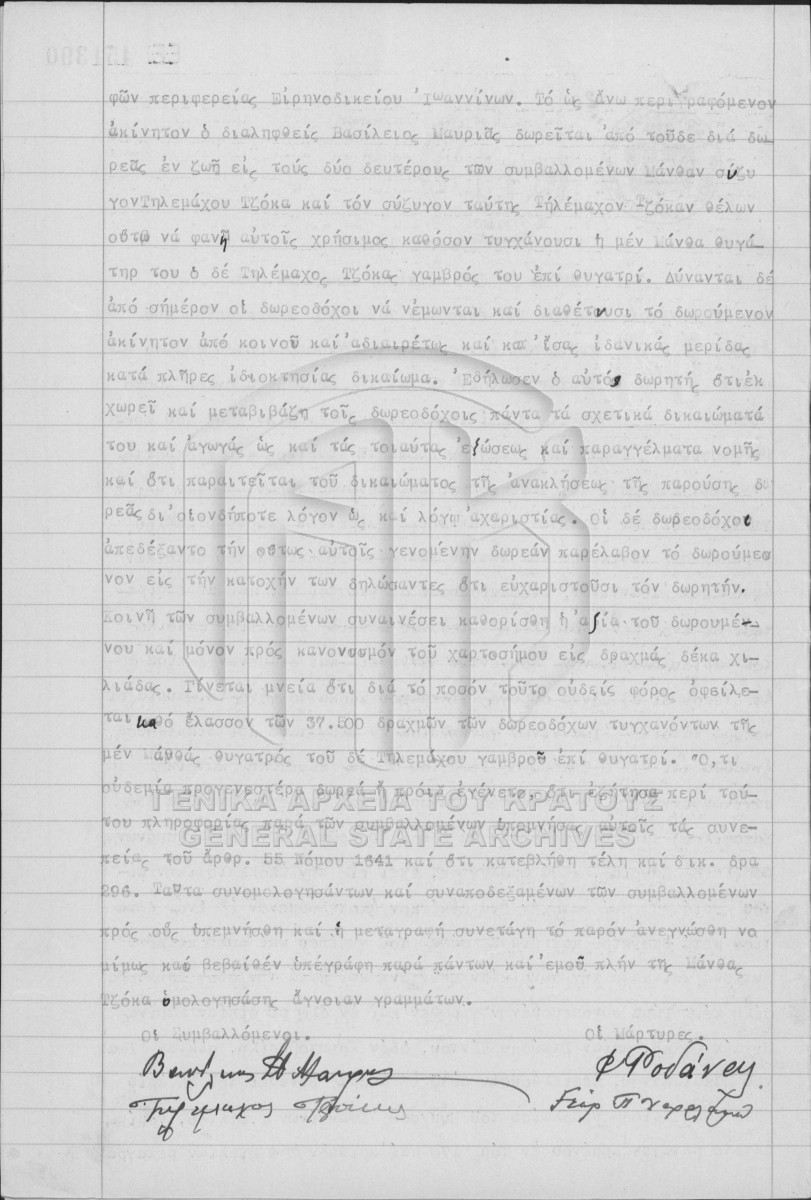 φῶν περιφερείας Εἰρηνοδικείου Ἰωαννίνων. Τό ὡς ἄνω περιγραφόμενον
ἀκίνητον ὁ διαληφθείς Βασίλειος Μαυριᾶς δωρεῖται ἀπό τοῦδε διά δω-
ρεᾶς ἐν ζωῇ εἰς τούς δύο δευτέρους τῶν συμβαλλομένων Μάνθαν σύζυ
γονΤηλεμάχου Τζόκα καί τόν σύζυγον ταύτης Τηλέμαχον Τζόκαν θέλων
οὕτω νά φανῇ αὐτοῖς χρήσιμος καθόσον τυγχάνουσι ἡ μέν Μάνθα θυγά-
τηρ του ὁ δέ Τηλέμαχος Τζόκας γαμβρός του ἐπί θυγατρί. Δύνανται δέ
ἀπό σήμερον οἱ δωρεοδόχοι νά νέμωνται καί διαθέτουσι τό δωρούμενον
ἀκίνητον ἀπό κοινοῦ καί ἀδιαιρέτως καί κατ' ἴσας ἰδανικάς μερίδας
κατά πλῆρες ἰδιοκτησίας δικαίωμα. Ἐδήλωσεν ὁ αὐτός δωρητής ὅτιἐκ
χωρεῖ καί μεταβιβάζη τοῖς δωρεοδόχοις πάντα τά σχετικά δικαιώματά
του καί ἀγωγάς ὡς καί τάς τοιαύτας ἐξώσεως καί παραγγέλματα νομῆς
καί ὅτι παραιτεῖται τοῦ δικαιώματος τῆς ἀνακλήσεως τῆς παρούσης δω
ρεᾶς δι' οἱονδήποτε λόγον ὡς καί λόγῳ ἀχαριστίας. Οἱ δέ δωρεοδόχοι
ἀπεδέξαντο τήν οὕτως αὐτοῖς γενομένην δωρεάν παρέλαβον τό δωρούμεο
νον εἰς τήν κατοχήν των δηλώσαντες ὅτι εὐχαριστοῦσι τόν δωρητήν.
Κοινῇ τῶν συμβαλλομένων συναινέσει καθορίσθη ἡ ἀξία τοῦ δωρουμέ-
νου καί μόνον πρός κανονισμόν τοῦ χαρτοσήμου εἰς δραχμάς δέκα χι-
λιάδας. Γίνεται μνεία ὅτι διά τό ποσόν τοῦτο οὐδείς φόρος ὀφείλε-
ται καθό ἔλασσον τῶν 37.500 δραχμῶν τῶν δωρεοδόχων τυγχανόντων τῆς
μέν Μάνθας θυγατρός τοῦ δέ Τηλεμάχου γαμβροῦ ἐπί θυγατρί. Ὅ,τι
οὐδεμία προγενεστέρα δωρεά ἤ προίξ ἐγένετο, ὅτι ἐζήτησα περί τού-
του πληροφορίας παρά τῶν συμβαλλομένων ὑπομνήσας αὐτοῖς τάς συνε-
πείας τοῦ ἄρθρ. 55 Νόμου 1641 καί ὅτι κατεβλήθη τέλη καί δικ. δρα
296. Ταῦτα συνομολογησάντων καί συναποδεξαμένων τῶν συμβαλλομένων
πρός οὕς ὑπεμνήσθη καί ἡ μεταγραφή συνετάγη τό παρόν ἀνεγνώσθη νο
μίμως καί βεβαιθέν ὑπέγράφη παρά πάντων καί ἐμοῦ πλήν τῆς Μάνθας
Τζόκα ὁμολογησάσης ἄγνοιαν γραμμάτων.
Οἱ Συμβαλλόμενοι.
Οἱ Μάρτυρες.
Τηλέμαχος Τζόκας
ΓΕΝΙΚΑ ΑΡΧΕΙΑ ΤΟΥ ΚΡΑΤΟΥΣ
GENERAL STATE ARCHIVES